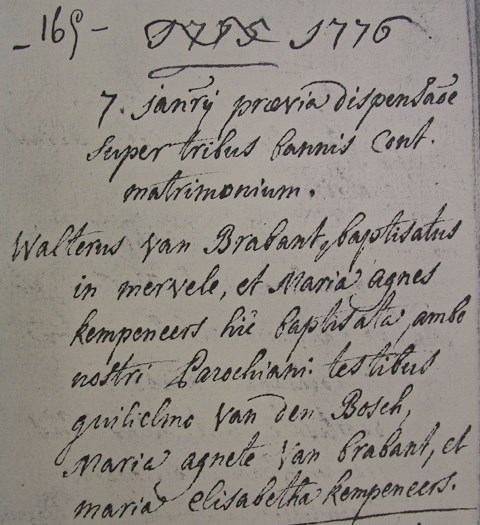 -169-  1775  1776
7. janrij prævia dispensaõe
super tribus bannis cont.
matrimonium.
Walterus van Brabant, baptisatus
in mervele, et Maria agnes
kempeneers hic baptisata, ambo
nostri Parochiani: testibus
guilielmo van den Bosch,
Maria agnete van brabant, et
maria elisabetha kempeneers.